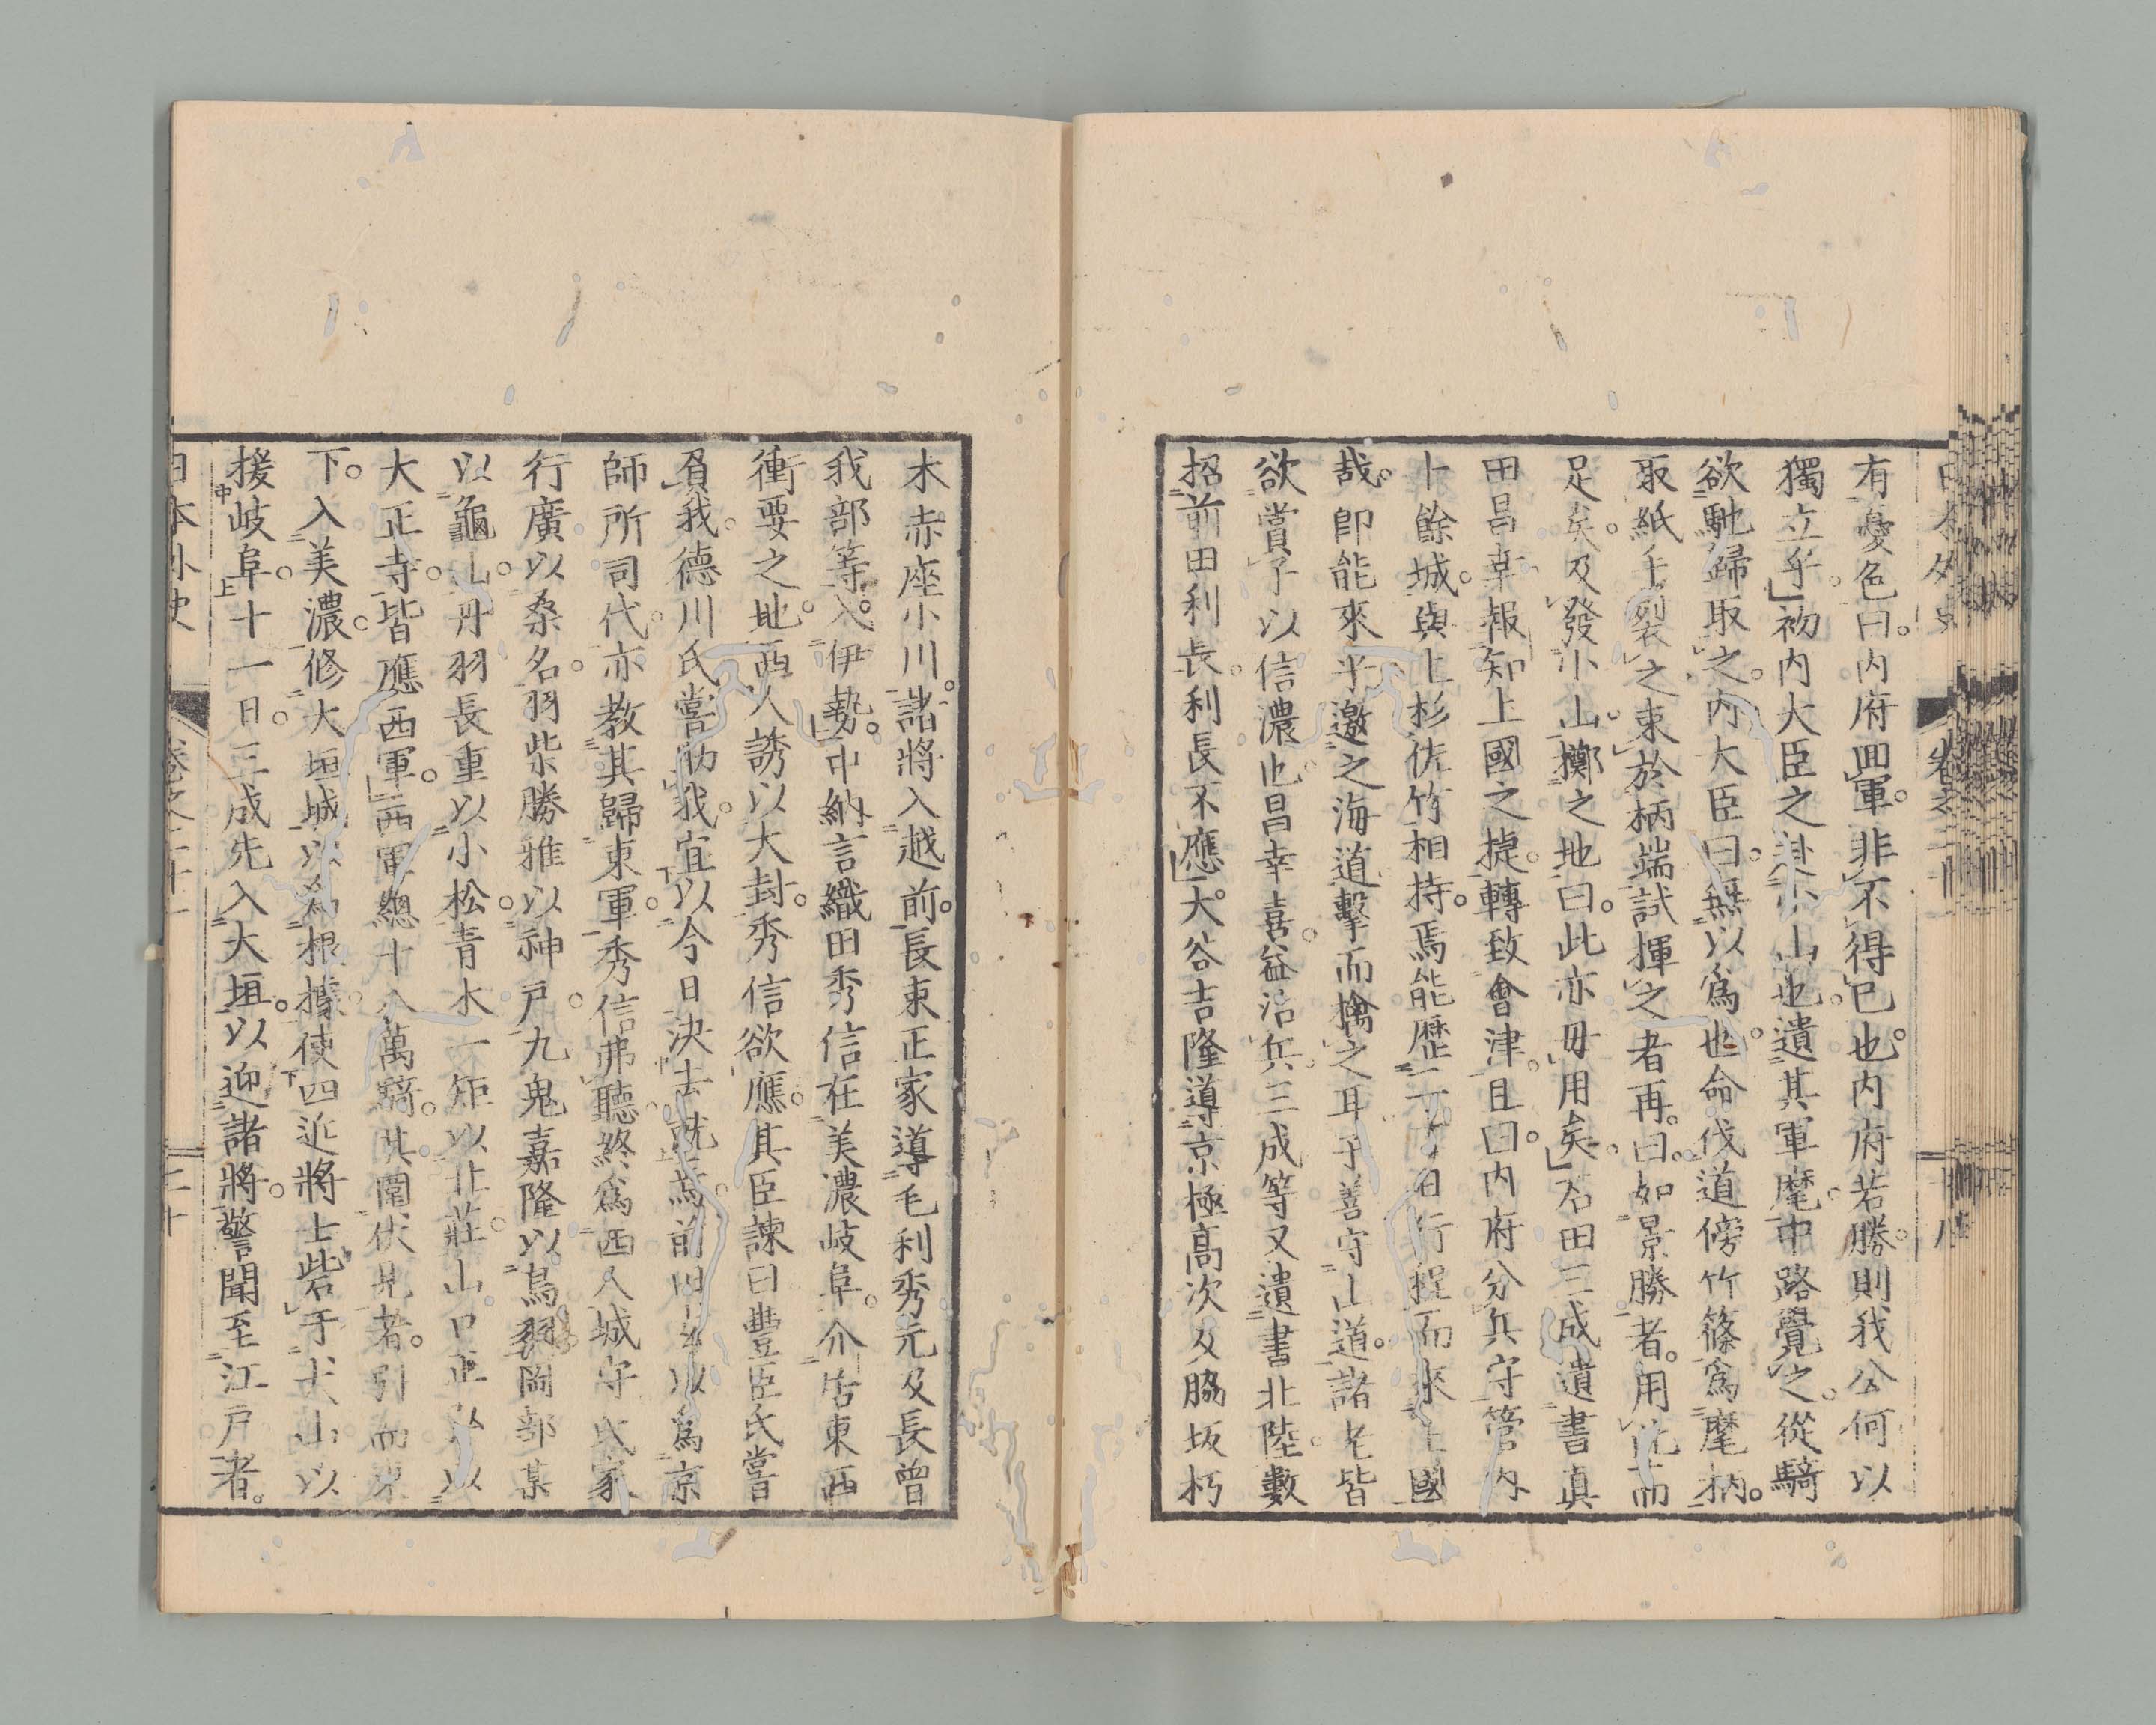 有憂色曰。内府回軍。非不得已也。内府若勝。則我公何以
獨立乎。初内大臣之赴小山也。遺其軍麾。中路覺之。從騎
欲馳歸取之。内大臣曰。無以爲也。命伐道傍竹篠爲麾柄。
取紙手裂之。束於柄端。試揮之者再。曰。如景勝者。用此而
足矣。及發小山。擲之地曰。此亦毋用矣。石田三成遺書真
田昌幸。報知上國之捷。轉致會津。且曰。内府分兵守管内
十餘城。與上杉佐竹相持。焉能歷二十日行程而來上國
哉。即能來乎。邀之海道。擊而擒之耳。子善守山道。諸老皆
欲賞子以信濃也。昌幸喜。益治兵。三成等又遺書北陸。數
招前田利長。利長不應。大谷吉隆導京極高次及脇坂朽
木赤座小川。諸將入越前。長束正家導毛利秀元及長曾
我部等。入伊勢。中納言織田秀信在美濃岐阜。介居東西
衝要之地。西人誘以大封。秀信欲應。其臣諫曰。豐臣氏嘗
負我。德川氏嘗助我。宜以今日決去就焉。前田玄以爲京
師所司代。亦教其歸東軍。秀信弗聽。終爲西人城守。氏家
行廣以桑名。羽柴勝雅以神戸。九鬼嘉隆以鳥羽。岡部某
以龜山。丹羽長重以小松。青木一矩以北莊。山口正弘以
大正寺。皆應西軍。西軍總十八萬騎。其圍伏見者。引而東
下。入美濃。修大垣城。以爲根據。使四近將士砦于犬山以
援岐阜。十一日。三成先入大垣。以迎諸將。警聞至江戸者。
日本外史
卷之二十一
二十